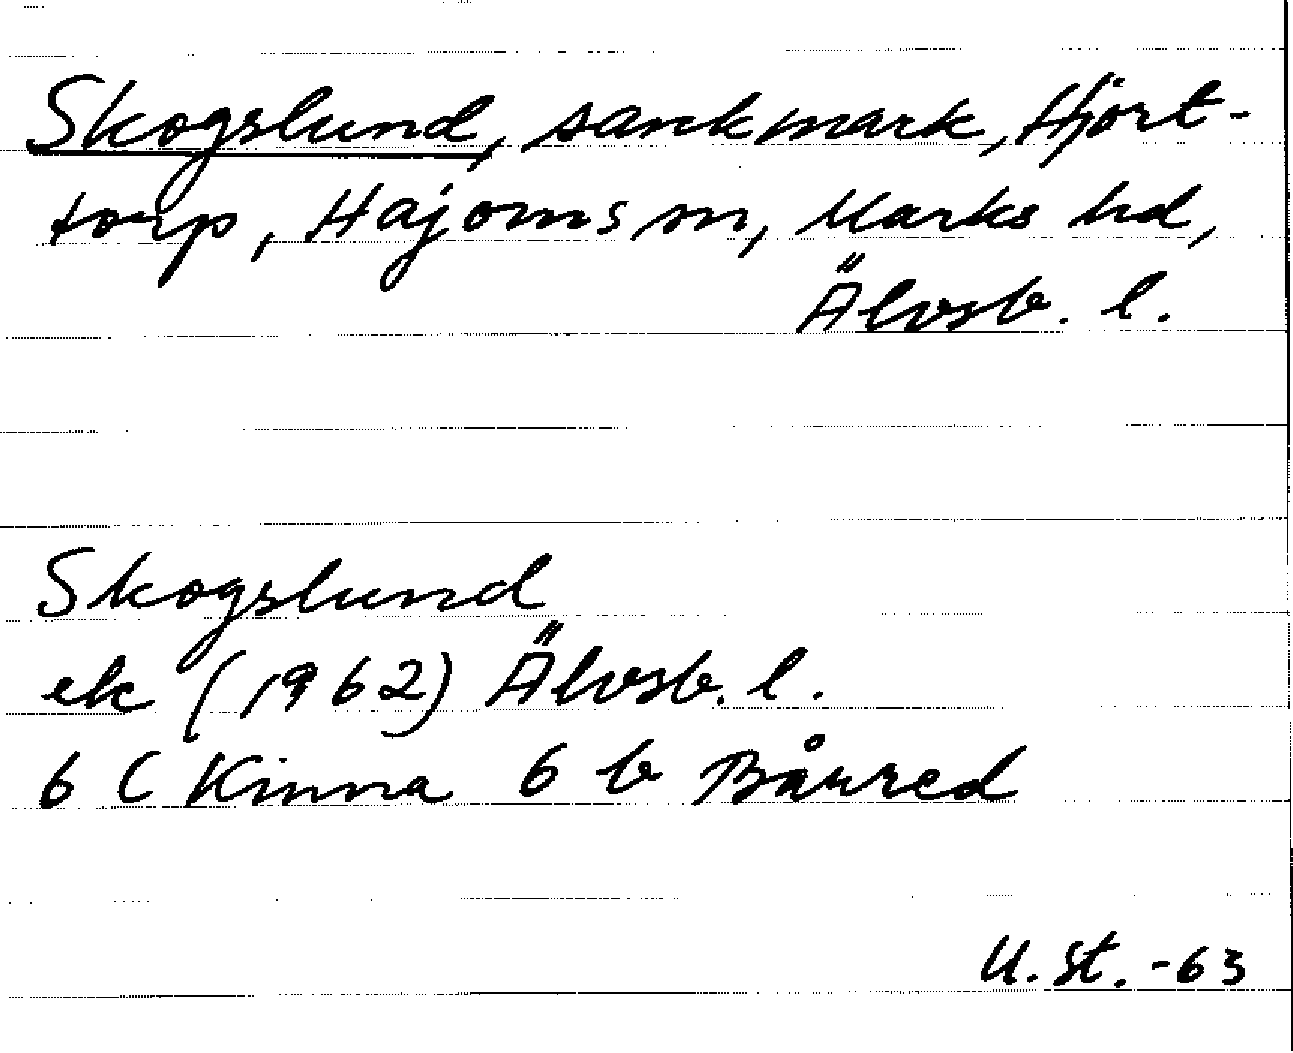 Skogslund, sankmark, Hjort-
torp, Hajoms sn, Marks hd,
Älvsb. l.
Skogslund
ek (1962) Älvsb. l.
6 C Kinna 6 b Båxred
U. St. -63